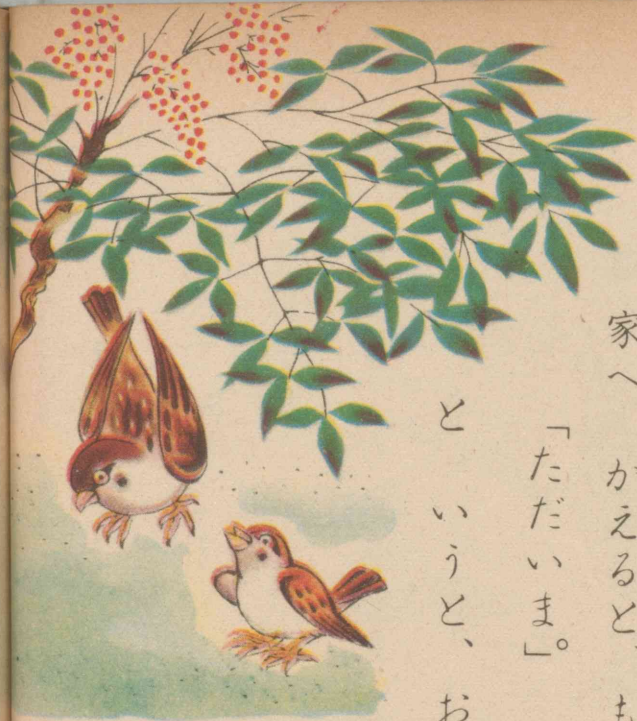 家へ かえると、も
「ただいま。」
と いうと、お